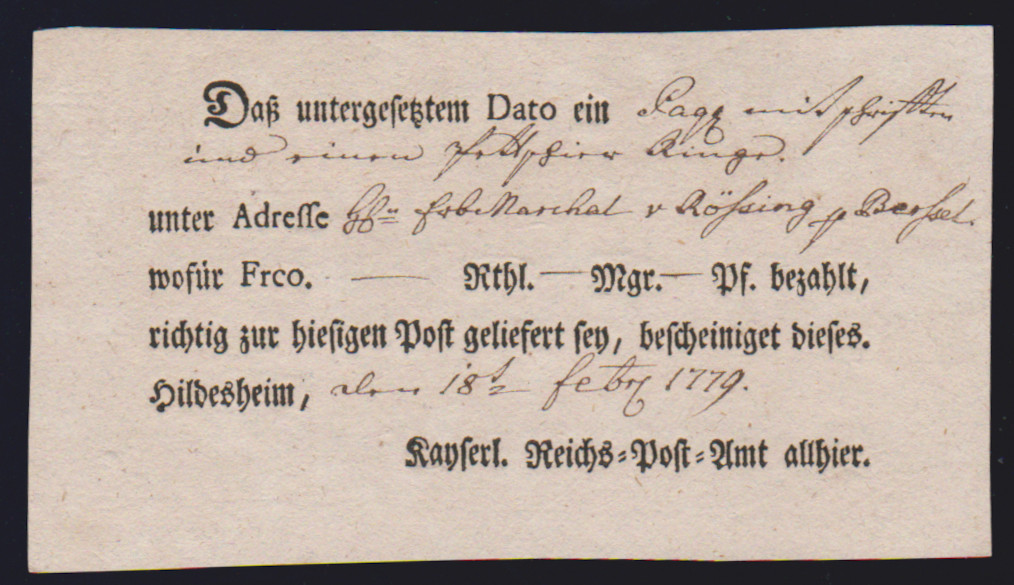 Daß untergesetztem Dato ein Paqq mit schrifften
und einen Pettschier Ringe.
unter Adresse ErbMarschal v Rössing p Berssel.
wofür Frco. — Rthl. — Mgr. — Pf. bezahlt,
richtig zur hiesigen Post geliefert sey, bescheiniget dieses.
Hildesheim, den 18t Febr 1779.
Kayserl. Reichs-Post-Amt allhier.